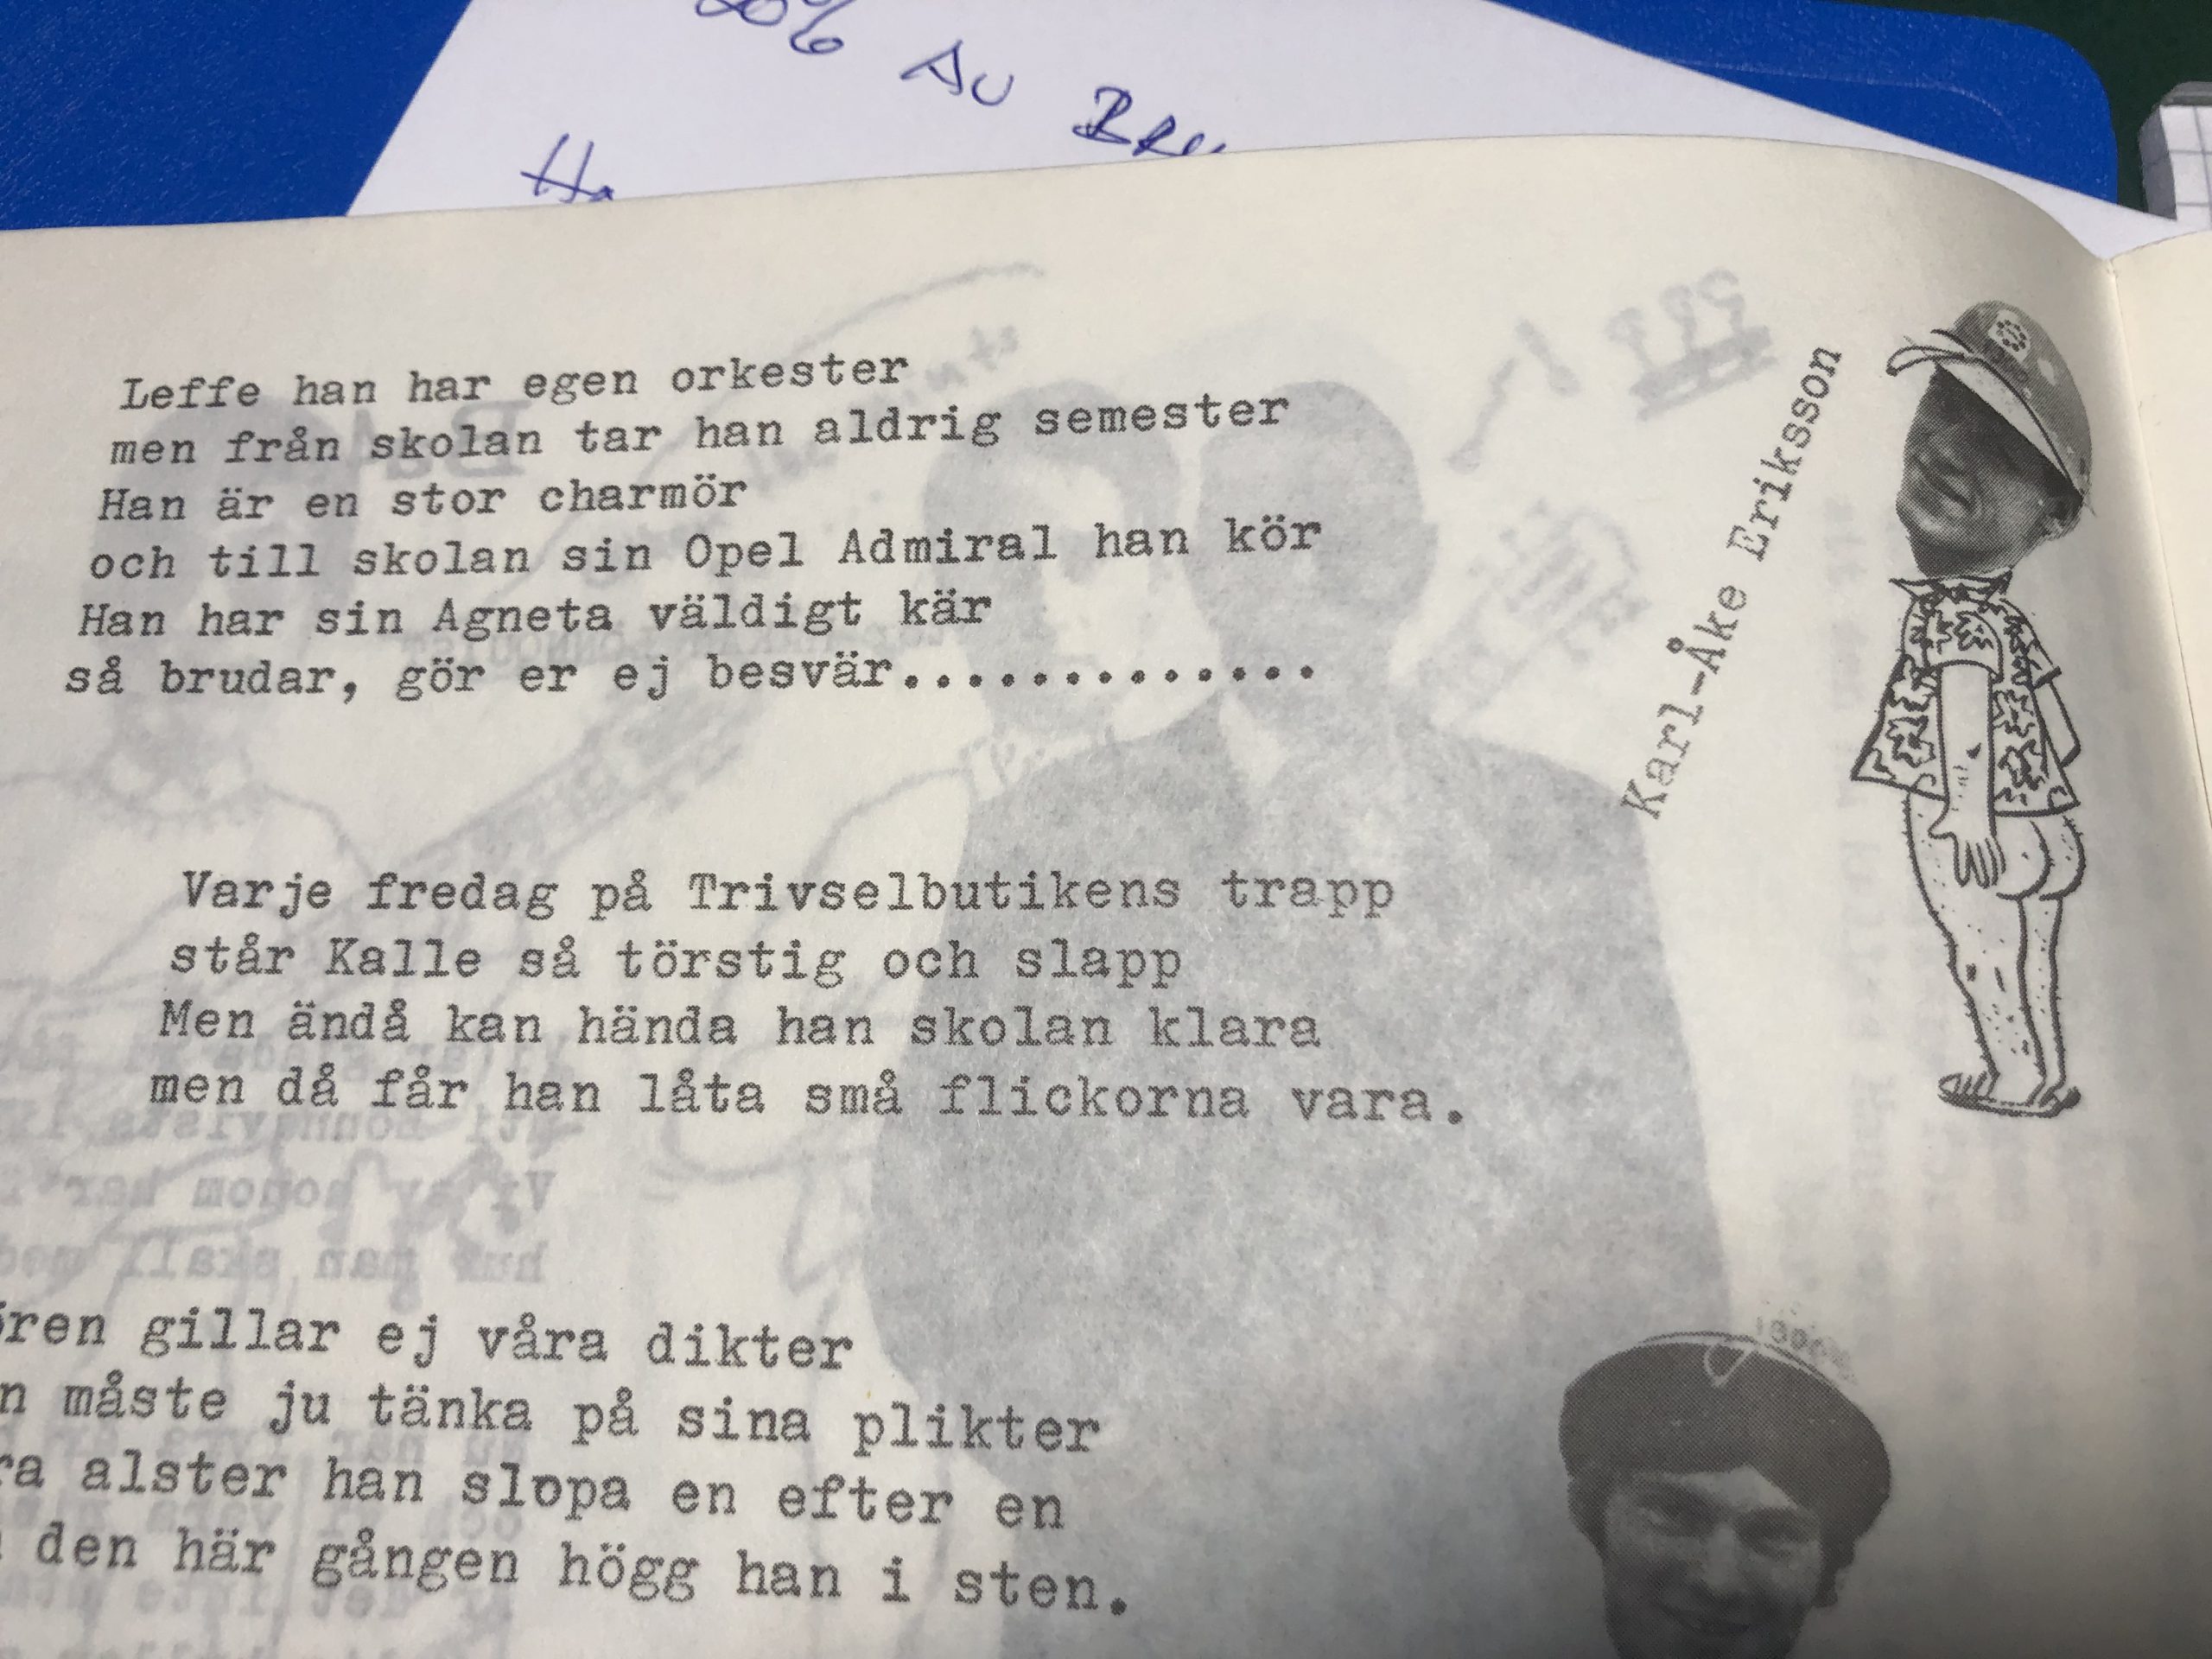 80% AV
Leffe han har egen orkester
men från skolan tar han aldrig semester
Han är en stor charmör
och till skolan sin Opel Admiral han kör
Han har sin Agneta väldigt kär
så brudar, gör er ej besvär.............
Karl-Åke Eriksson
Varje fredag på Trivselbutikens trapp
står Kalle så törstig och slapp
Men ändå kan hända han skolan klara
men då får han låta små flickorna vara.
gillar ej våra dikter
måste ju tänka på sina plikter
alster han slopa en efter en
den här gången högg han i sten.